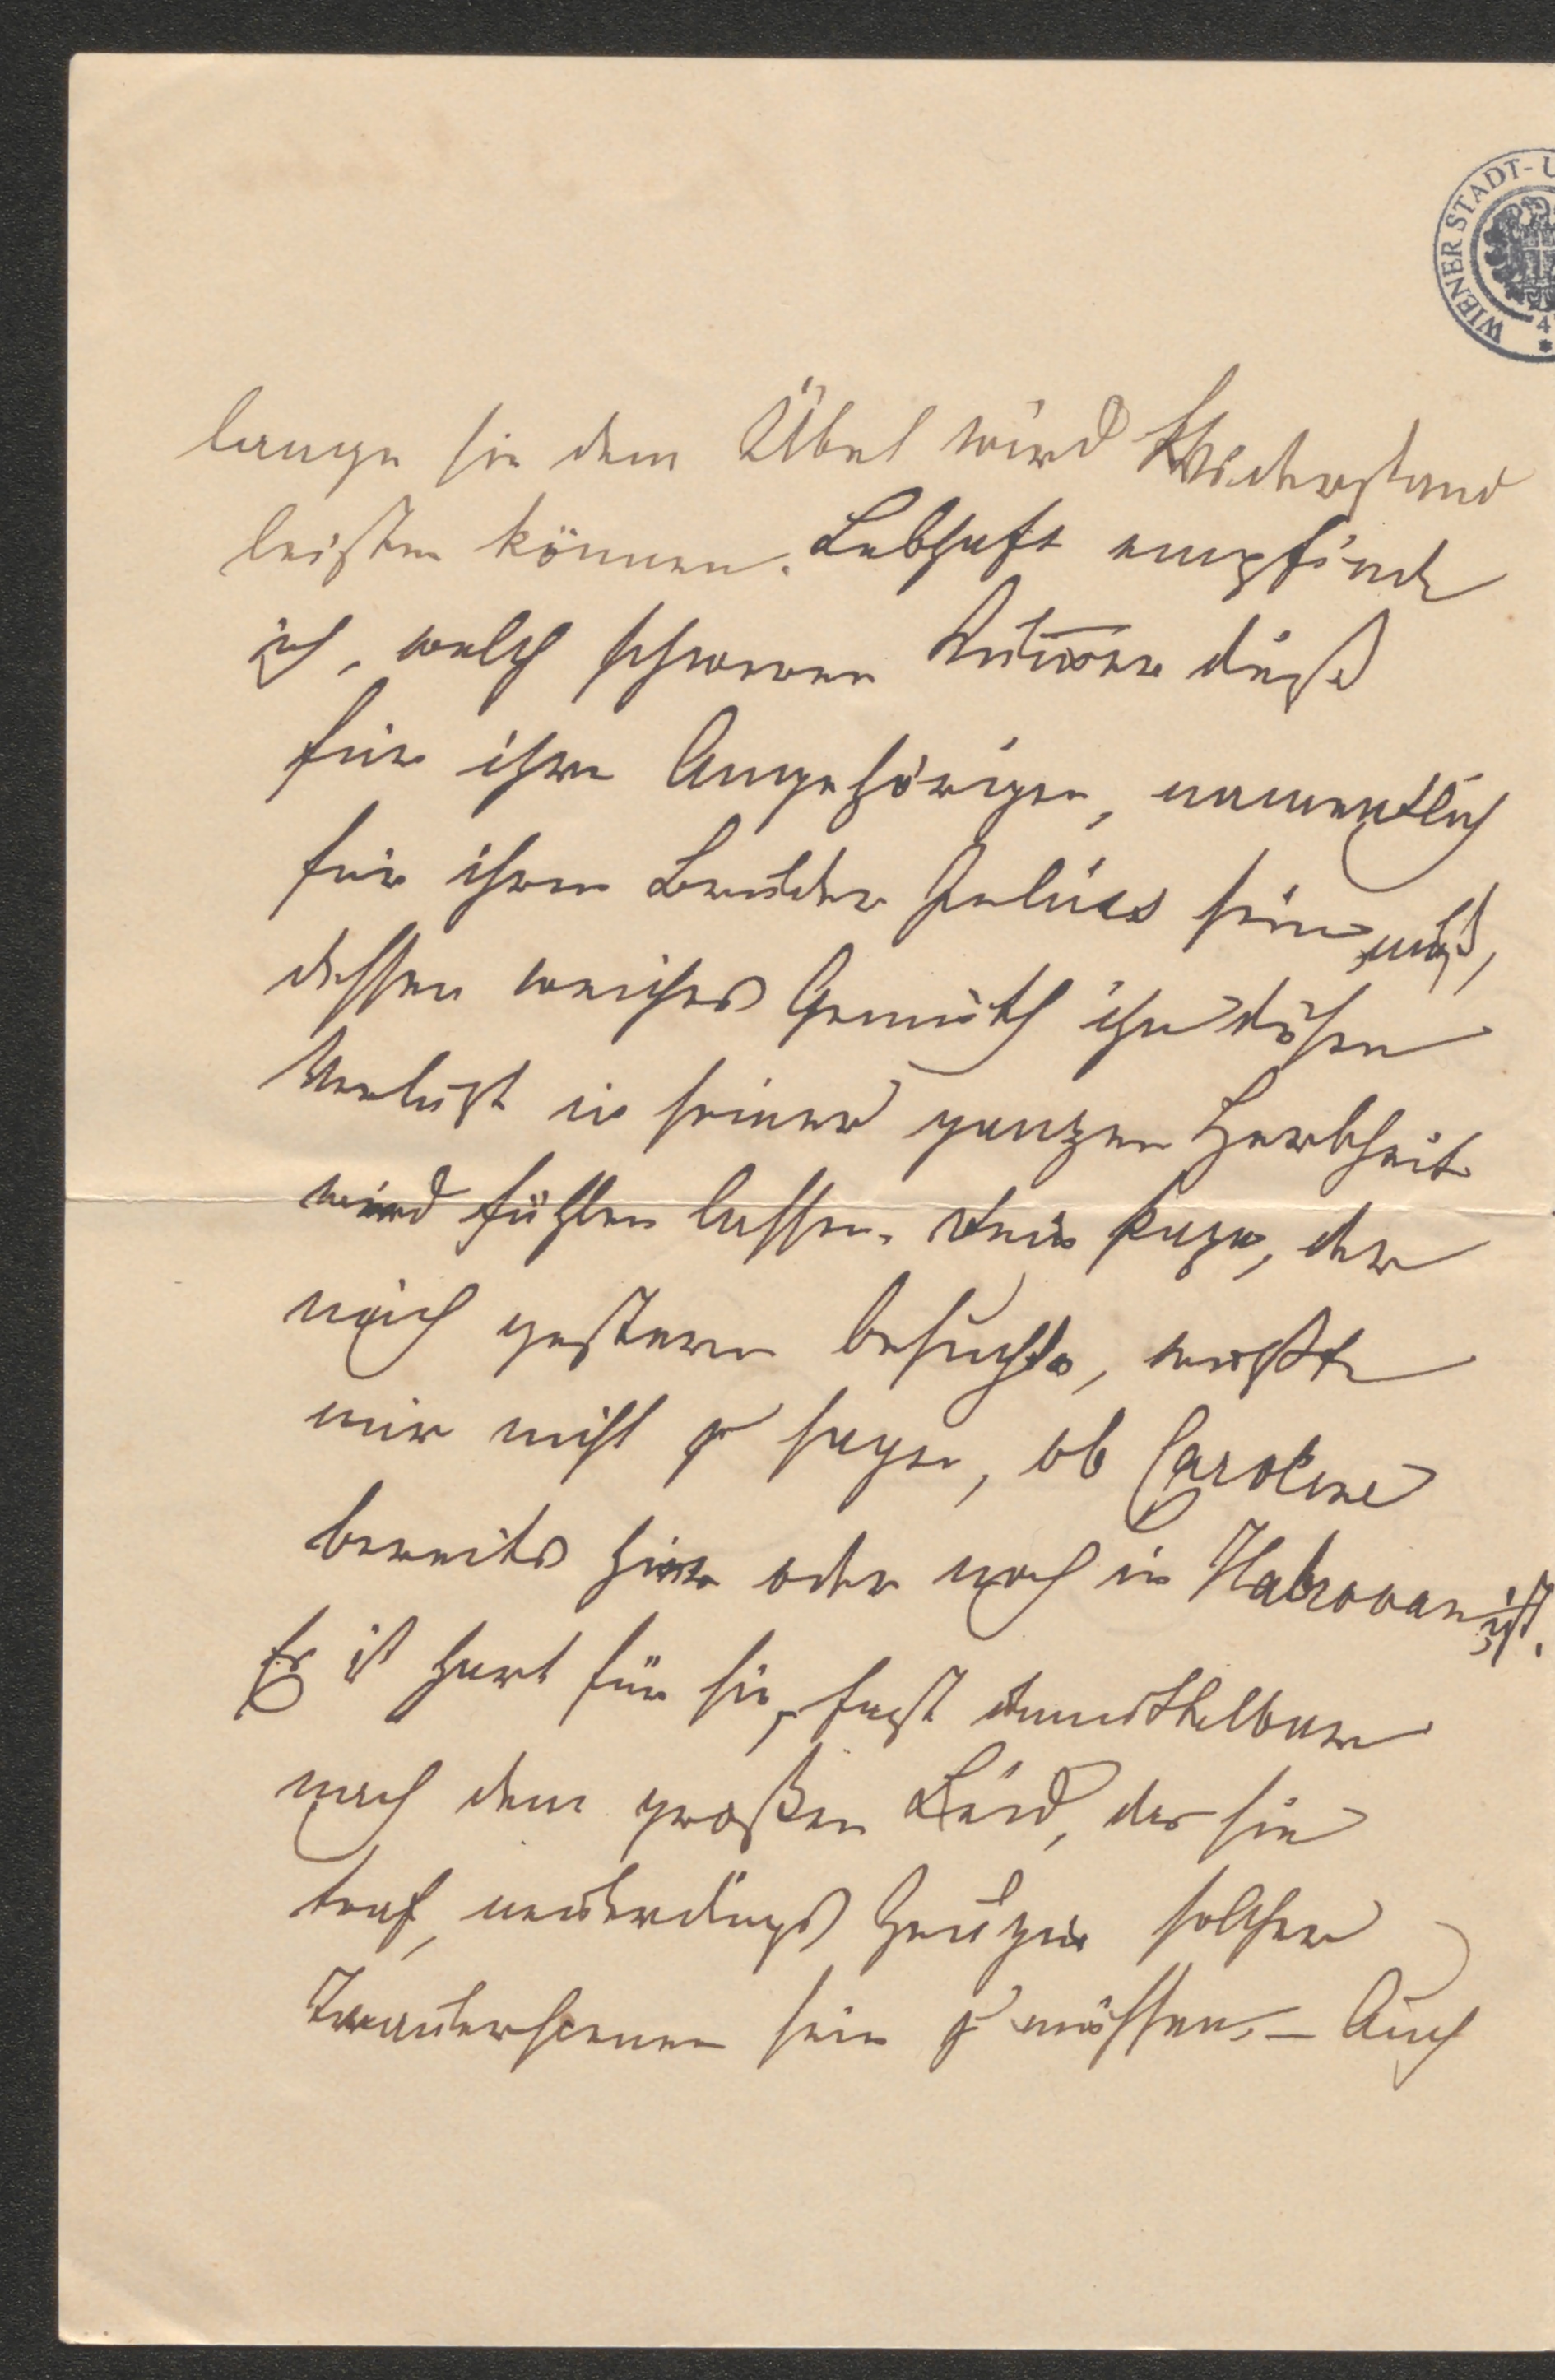 WIENER STADT-U
4
lange sie dem Übel wird Widerstand
leisten können. Lebhaft empfinde
ich, welch schwerer Kummer dieß
für ihre Angehörigen, namentlich
für ihren Bruder Julius sein muß,
dessen weiches Gemüth ihn diesen
Verlust in seiner ganzen Herbheit
wird fühlen lassen. Dein Papa, der
mich gestern besuchte, wußte
mir nicht zu sagen, ob Caroline
bereits hier oder noch in Habrovan ist.
Es ist hart für sie, fast unmittelbar
nach dem großen Leid, das sie
traf, neuerdings Zeugin solcher
Trauerscenen sein zu müssen. – Auch